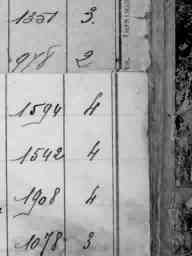 1351 3.
978 2
1594 4
1542 4
1908 4
1078 3